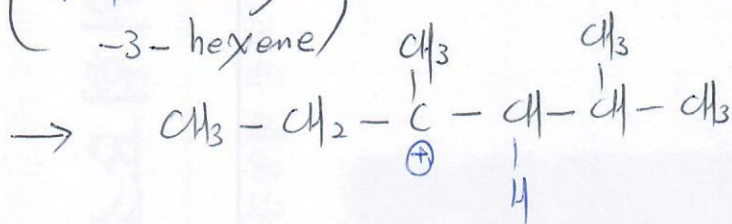 ( -3- hexene)
CH3 CH3
→ CH3 - CH2 - C - CH - CH - CH3
⊕ H